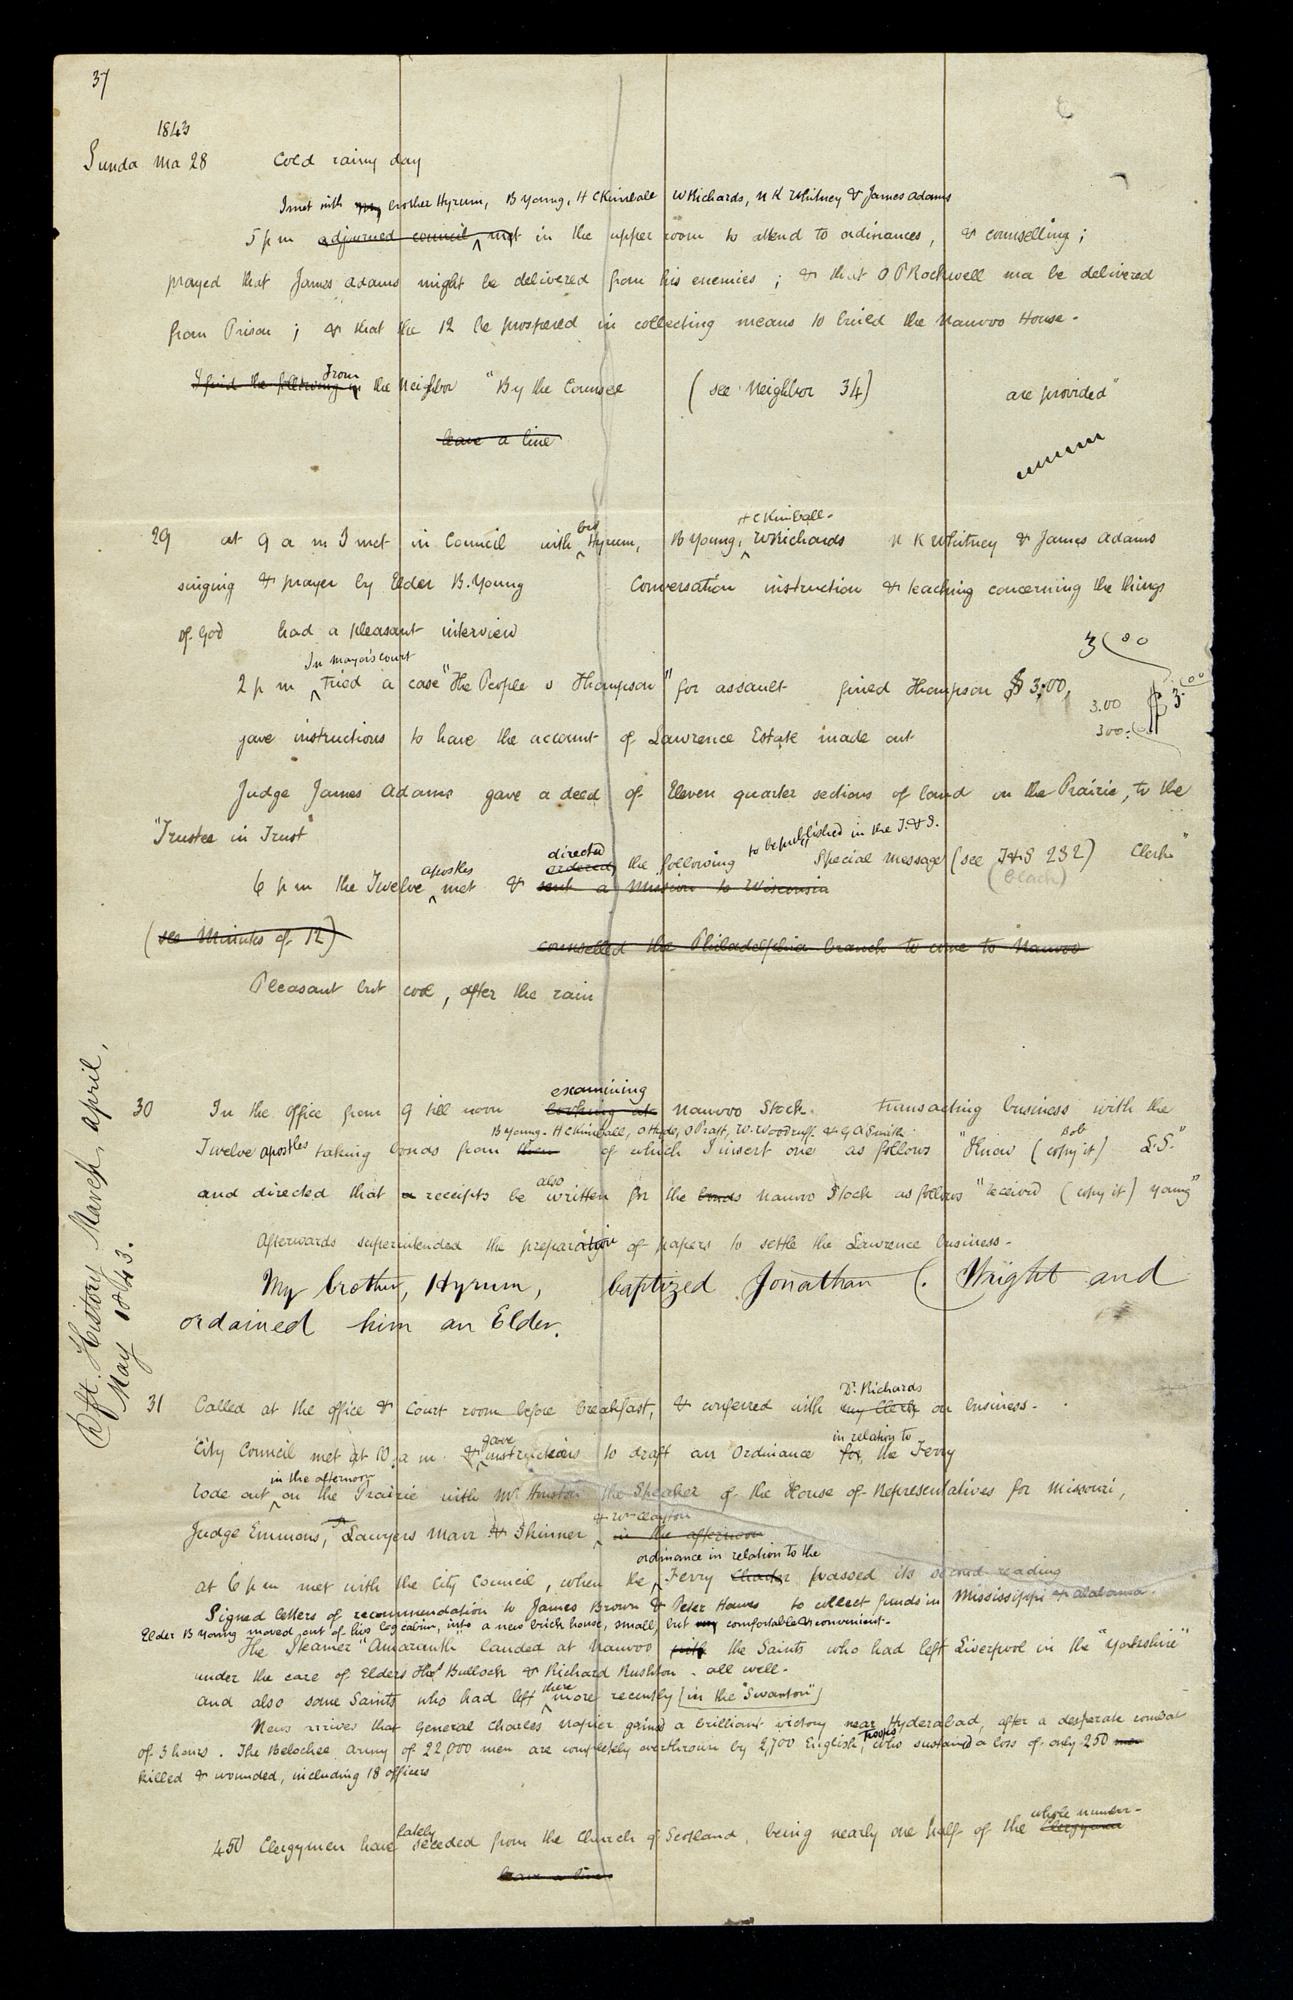 37
1843
Sunda Ma 28 Cold rainy day
I met with my brother Hyrum, B Young, H C Kimball W Richards, N K Whitney & James Adams
5 p m adjourned council met in the upper room to attend to ordinances, & counselling;
prayed that James Adams might be delivered from his enemies; & that O P Rockwell ma be delivered
from Prison; & that the 12 be prospered in collecting means to build the Nauvoo House.
From
I find the following in the Neighbor "By the Counsee (see Neighbor 34) are provided"
leave a line
bro H C Kimball.
29 at 9 a m I met in Council with Hyrum, B Young, W Richards N K Whitney & James Adams
singing & prayer by Elder B. Young Conversation instruction & teaching concerning the things
of God had a pleasant interview
3 00
In mayor's court
2 p m Tried a case "The People v Thompson" for assault fined Thompson $ 3.00,
3.00
300.
$ 3.00
gave instructions to have the account of Lawrence Estate made out
Judge James Adams gave a deed of Eleven quarter sections of land on the Prairie, to the
"Trustee in Trust"
apostles directed to be published in the T. & S.
ordered the following Special message (see T & S 232) Clerk"
(Black)
6 p m the Twelve met & sent a Mission to Wisconsin
(see Minutes of 12) counselled the Philadelphia branch to come to Nauvoo
Pleasant but cool, after the rain
examining
30 In the office from 9 till noon looking at Nauvoo Stock. transacting business with the
B Young. H C Kimball, O Hyde, O Pratt, W. Woodruff. & G A Smith Bob
Twelve apostles taking bonds from them of which I insert one as follows "Know (copy it) L.S."
also
and directed that a receipts be written for the bonds Nauvoo Stock as follows "received (copy it) Young"
Afterwards superintended the preparation of papers to settle the Lawrence business.
My brother, Hyrum, baptized Jonathan C. Wright and
ordained him an Elder.
Dft. History March, april,
May 1843.
Dr. Richards
31 Called at the office & Court room before breakfast, & conferred with my Clerk on business.
gave in relation to
City Council met at 10 a m & instructions to draft an Ordinance for the Ferry
in the afternoon
rode out on the Prairie with Mr Houston the Speaker of the House of Representatives for Missouri,
& Wm Clayton
Judge Emmons, Lawyers Marr & Skinner, in the afternoon
ordinance in relation to the
at 6 p m met with the City Council, when the Ferry Charter passed its second reading
Signed letters of recommendation to James Brown & Peter Hawes to collect funds in Mississippi & Alabama.
Elder B Young moved out of his log cabin, into a new brick house, small, but my comfortable & convenient.
The Steamer "Amaranth landed at Nauvoo with the Saints who had left Liverpool in the "Yorkshire"
under the care of Elders Thos Bullock & Richard Rushton. all well.
there
and also some Saints who had left more recently [in the "Swanton"]
News arrives that General Charles Napier gained a brilliant victory near Hyderabad, after a desperate combat
troops
of 3 hours. The Belochee army of 22,000 men are completely overthrown by 2,700 English, who sustained a loss of only 250 men
killed & wounded, including 18 officers
lately whole number.
450 Clergymen have seceded from the Church of Scotland, being nearly one half of the Clergymen
leave a line